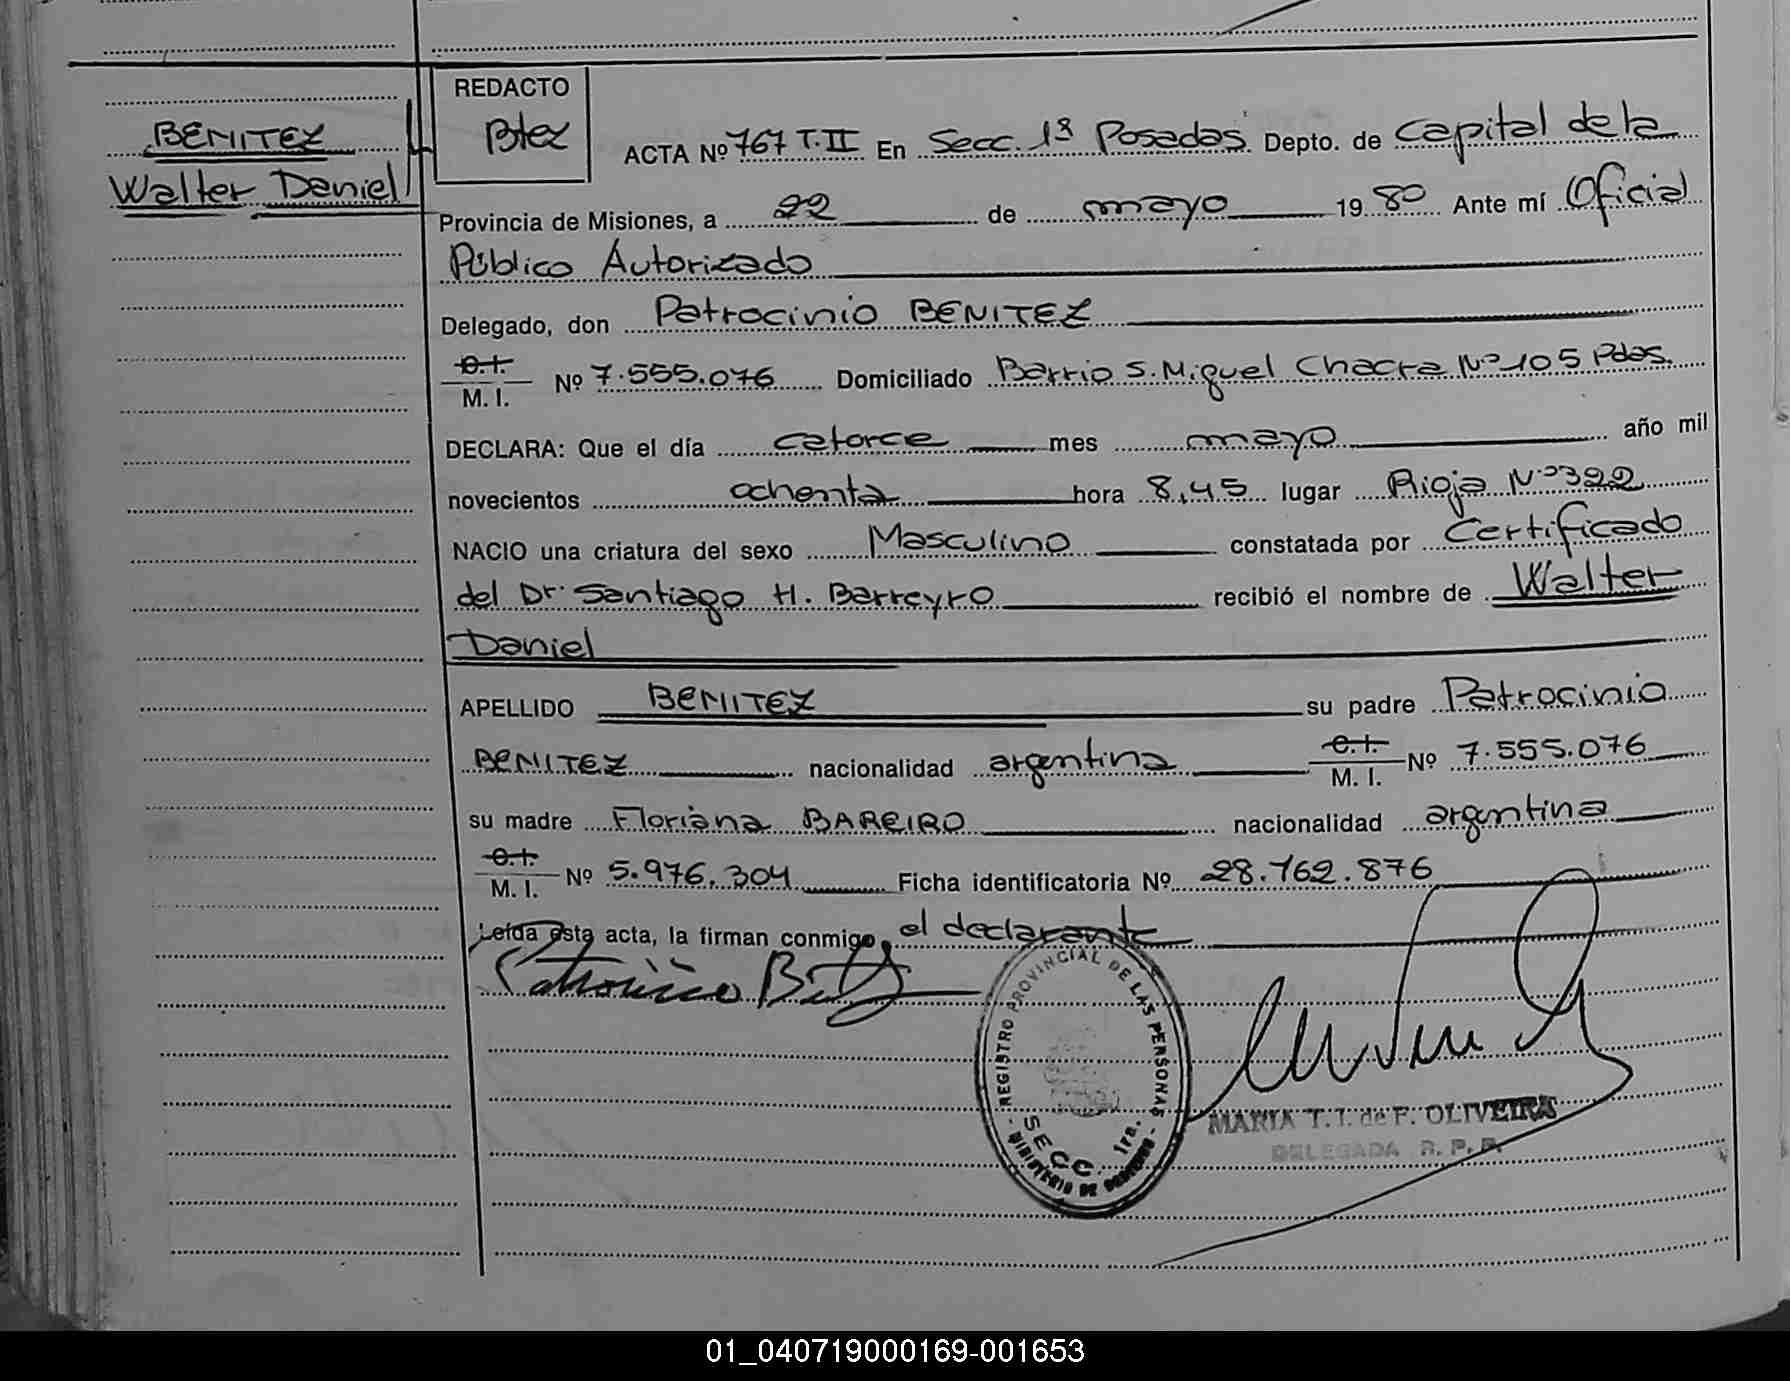 REDACTO
Btez
BENITEZ
Walter Daniel
ACTA Nº 767 T.II En Secc. 1ª Posadas Depto. de Capital de la
Provincia de Misiones, a 22 de mayo 1980 Ante mí Oficial
Público Autorizado
Delegado, don Patrocinio BENITEZ
C.I.
M. I. Nº 7.555.076 Domiciliado Barrio S. Miguel Chacra Nº 105 Pdas.
DECLARA: Que el día catorce mes mayo año mil
novecientos ochenta hora 8,45 lugar Rioja Nº 322
NACIO una criatura del sexo Masculino constatada por Certificado
del Dr. Santiago H. Barreyro recibió el nombre de Walter
Daniel
APELLIDO BENITEZ su padre Patrocinio
BENITEZ nacionalidad argentina C.I. M. I. Nº 7.555.076
su madre Floriana BAREIRO nacionalidad argentina
C.I.
M. I. Nº 5.976.304 Ficha identificatoria Nº 28.762.876
Leída esta acta, la firman conmigo, el declarante
Patrocinio
REGISTRO PROVINCIAL DE LAS PERSONAS
SECC. 1ra.
MINISTERIO DE GOBIERNO
MARIA T. I. de F. OLIVEIRA
DELEGADA R. P. P.
01_040719000169-001653